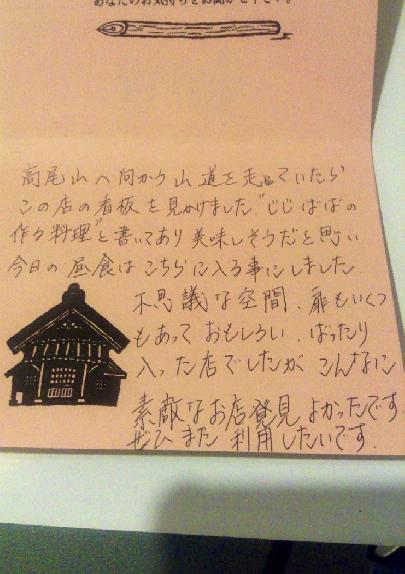 あなたのお気持ちをお聞かせ下さい。
高尾山へ向かう山道を走っていたら
この店の看板を見かけました"じじばばの
作る料理"と書いてあり美味しそうだと思い
今日の昼食はこちらに入る事にしました
不思議な空間、扉もいくつ
もあっておもしろい、ばったり
入った店でしたがこんなに
素敵なお店発見よかったです
ぜひまた利用したいです.